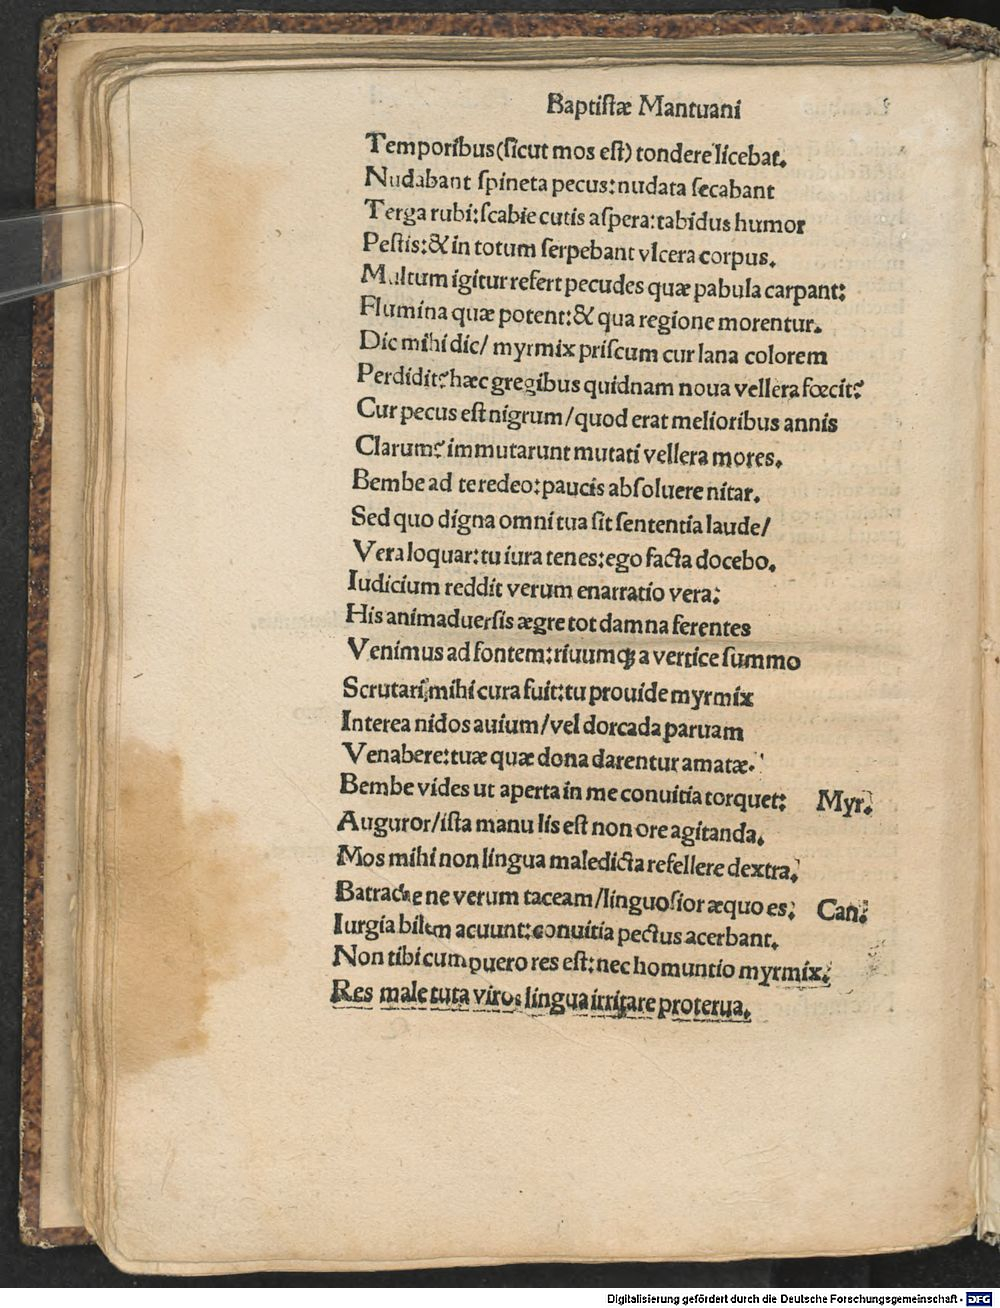 Baptistæ Mantuani
Temporibus (sicut mos est) tondere licebat.
Nudabant spineta pecus: nudata secabant
Terga rubi: scabie cutis aspera: tabidus humor
Pestis: & in totum serpebant vlcera corpus.
Multum igitur refert pecudes quæ pabula carpant:
Flumina quæ potent: & qua regione morentur.
Dic mihi dic/ myrmix priscum cur lana colorem
Perdidit? hæc gregibus quidnam noua vellera fœcit?
Cur pecus est nigrum/ quod erat melioribus annis
Clarum? immutarunt mutati vellera mores.
Bembe ad te redeo: paucis absoluere nitar.
Sed quo digna omni tua sit sententia laude/
Vera loquar: tu iura tenes: ego facta docebo.
Iudicium reddit verum enarratio vera:
His animaduersis ægre tot damna ferentes
Venimus ad fontem: riuumqꝫ a vertice summo
Scrutari mihi cura fuit: tu prouide myrmix
Interea nidos auium/ vel dorcada paruam
Venabere: tuæ quæ dona darentur amatæ.
Bembe vides ut aperta in me conuitia torquet: Myr.
Auguror/ ista manu lis est non ore agitanda.
Mos mihi non lingua maledicta refellere dextra.
Batrache ne verum taceam/ linguosior æquo es: Can.
Iurgia bilem acuunt: conuitia pectus acerbant.
Non tibi cum puero res est: nec homuntio myrmix.
Res male tuta viros lingua irritare proterua.
Digitalisierung gefördert durch die Deutsche Forschungsgemeinschaft - DFG